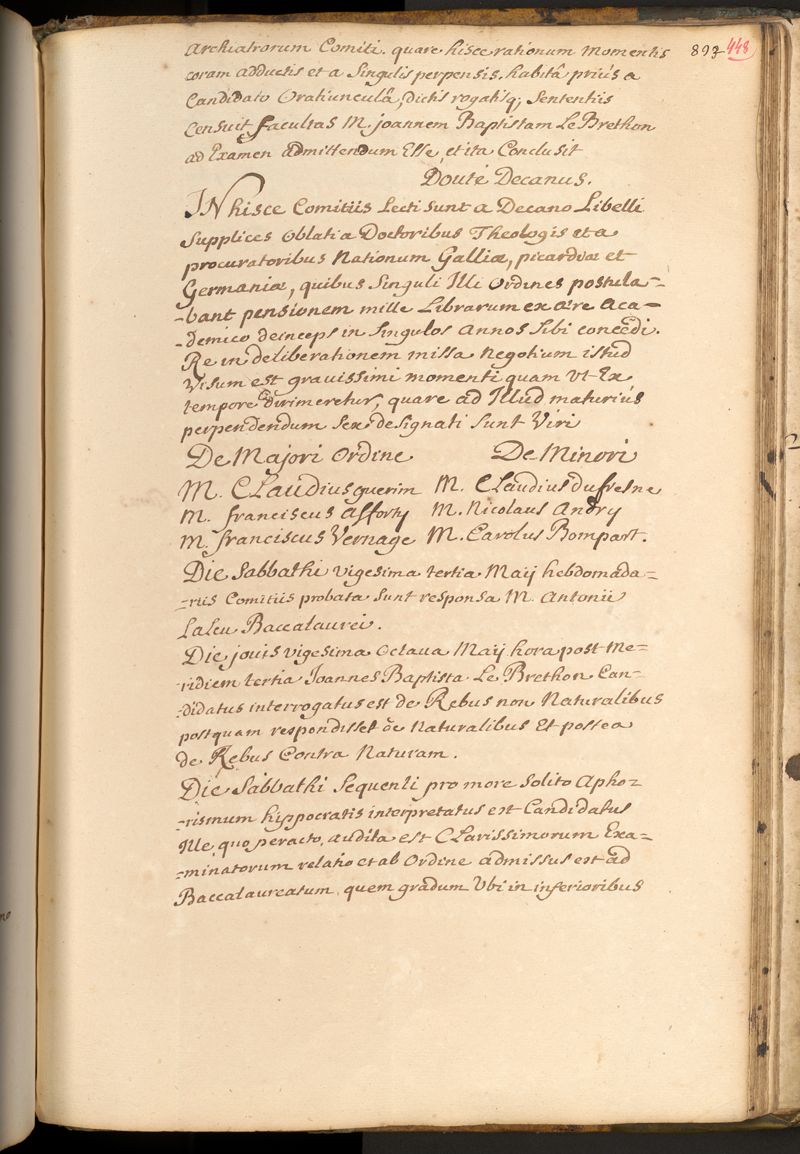 Archiatrorum Comiti. quare hisce rationum momentis 893 448
coram adductis et a singulis perpensis, habitâ priùs a
Candidato Oratiunculâ, dictis rogatisq; Sententiis
Censuit facultas M. joannem Baptistam Le Brethon
ad Examen admittendum Esse, et ita Conclusit
Douté Decanus.
IN hisce Comitiis Lecti sunt a Decano Libelli
Supplices oblati a Doctoribus Theologis et a
procuratoribus Nationum Galliæ, picardiæ et
Germaniæ, quibus singuli Illi ordines postula=
=bant pensionem mille Librarum ex ære Aca=
=demico deinceps in singulos Annos sibi concedi.
Re in deliberationem missa negotium istud
Visum est gravissimi momenti quam Vt Ex
tempore dirimeretur, quare ad Illud maturiùs
perpendendum sex designati sunt Viri
De Majori Ordine De Minori
M. CLaudius guerim M. CLaudius dufresne
M. franciscus afforty M. Nicolaus Andry
M. franciscus Vernage M. Carolus Bompart.
Die Sabbathi vigesima tertia Maij hebdomada=
=riis Comitiis probata sunt responsa M. Antonii
LaLeu Baccalaurei.
Die jovis vigesima octava Maij hora post Me=
=ridiem tertia Joannes Baptista Le Brethon Can=
=didatus interrogatus est de Rebus non Naturalibus
postquam respondisset de Naturalibus Et postea
de Rebus Contra Naturam.
Die Sabbathi sequenti pro more solito Apho=
=rismum hyppocratis interpretatus est Candidatus
Ille quo peracto, audita est CLarissimorum Exa=
=minatorum relatio et ab Ordine admissus est ad
Baccalaureatum, quem gradum Vbi in inferioribus